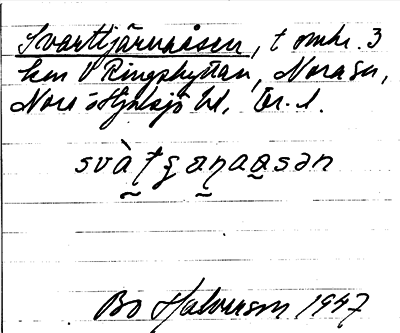 Svarttjärnåsen, t omkr. 3
km V Ringshyttan, Nora sn,
Nora o Hjulsjö hd, Ör. l.
svàtɕæ̣ṇaɑsən
Bo Halvarson 1947